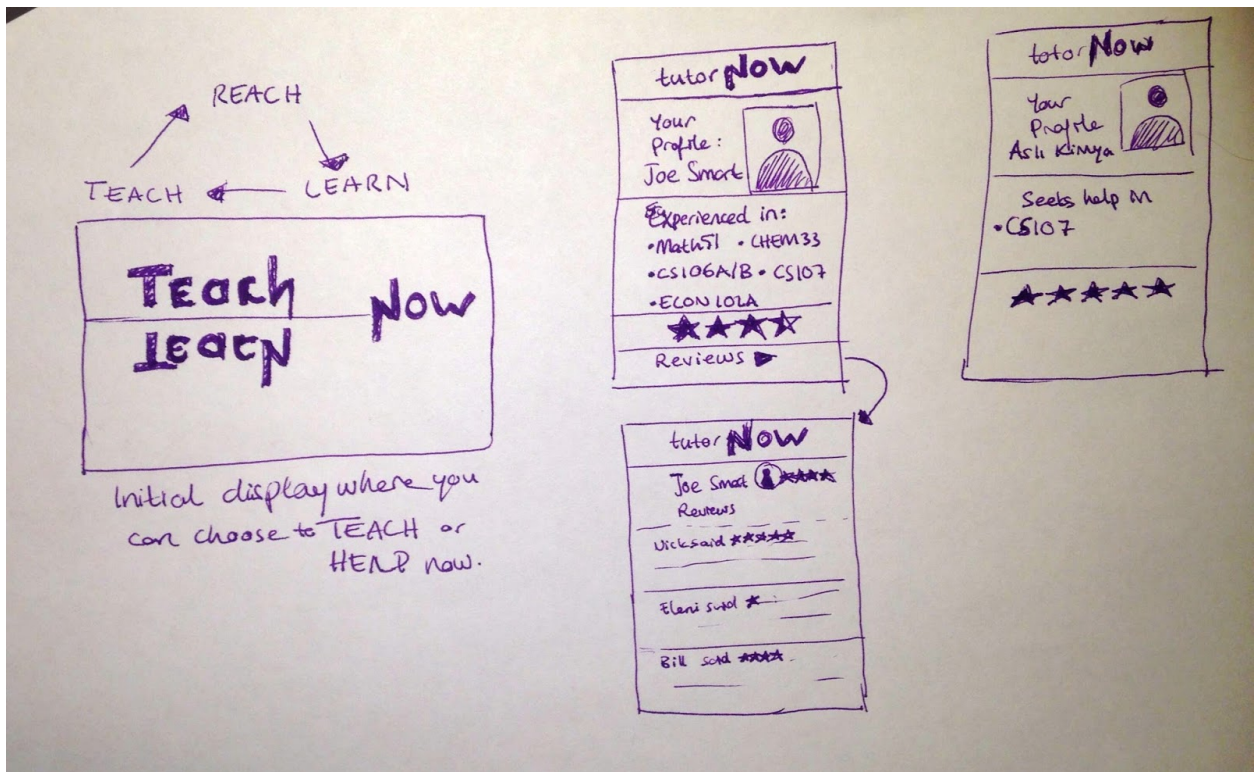 REACH
TEACH
LEARN
Teach
Learn
Now
Initial display where you
can choose to TEACH or
HELP now.
tutor Now
Your
Profile:
Joe Smart
Experienced in:
•Math51 •CHEM33
•CS106A/B •CS107
•ECON 102A
Reviews
tutor Now
Joe Smart
Reviews
Nick said
Eleni said
Bill said
totor Now
Your
Profile
Aslı Kimya
Seeks help in
•CS107